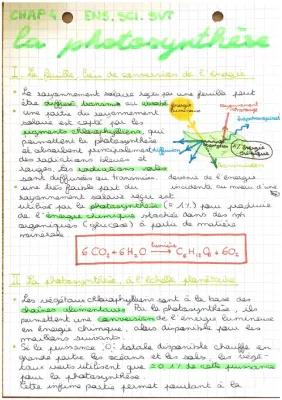 CHAP 4 ENS. SCI. SVT
la photosynthèse
I La feuille, lieu de conversion de l'énergie
• Le rayonnement solaire reçu par une feuille peut
être diffusé, transmis ou absorbé
• une partie du rayonnement
solaire est capté par les
pigments chlorophylliens, qui
permettent la photosynthèse
et absorbent principalement
des radiations bleues et
rouges, les radiations
sont diffusées ou transmises.
• une très faible part du
rayonnement solaire reçu est
utilisé par la photosynthèse (≈ 1%) pour produire
de l'énergie chimique stockée dans des
organiques (glucose) à partir de matière
minérale
énergie
lumineuse
rayonnement
évapotranspiration
diffusion
1% énergie
chimique
devenir de l'énergie
incidente au niveau d'une
lumière
6 CO2 + 6 H2O → C6H12O6 + 6O2
II La photosynthèse, à l'échelle planétaire
• Les végétaux chlorophylliens sont à la base des
chaînes alimentaires. Par la photosynthèse, ils
permettent une conversion de l'énergie lumineuse
en énergie chimique, alors disponible pour les
maillons suivants.
• Si la puissance totale disponible chauffe en
grande partie les océans et les sols, les végé-
taux verts utilisent que 0,1% de cette puissance
pour la photosynthèse.
Cette infime partie permet pourtant à la